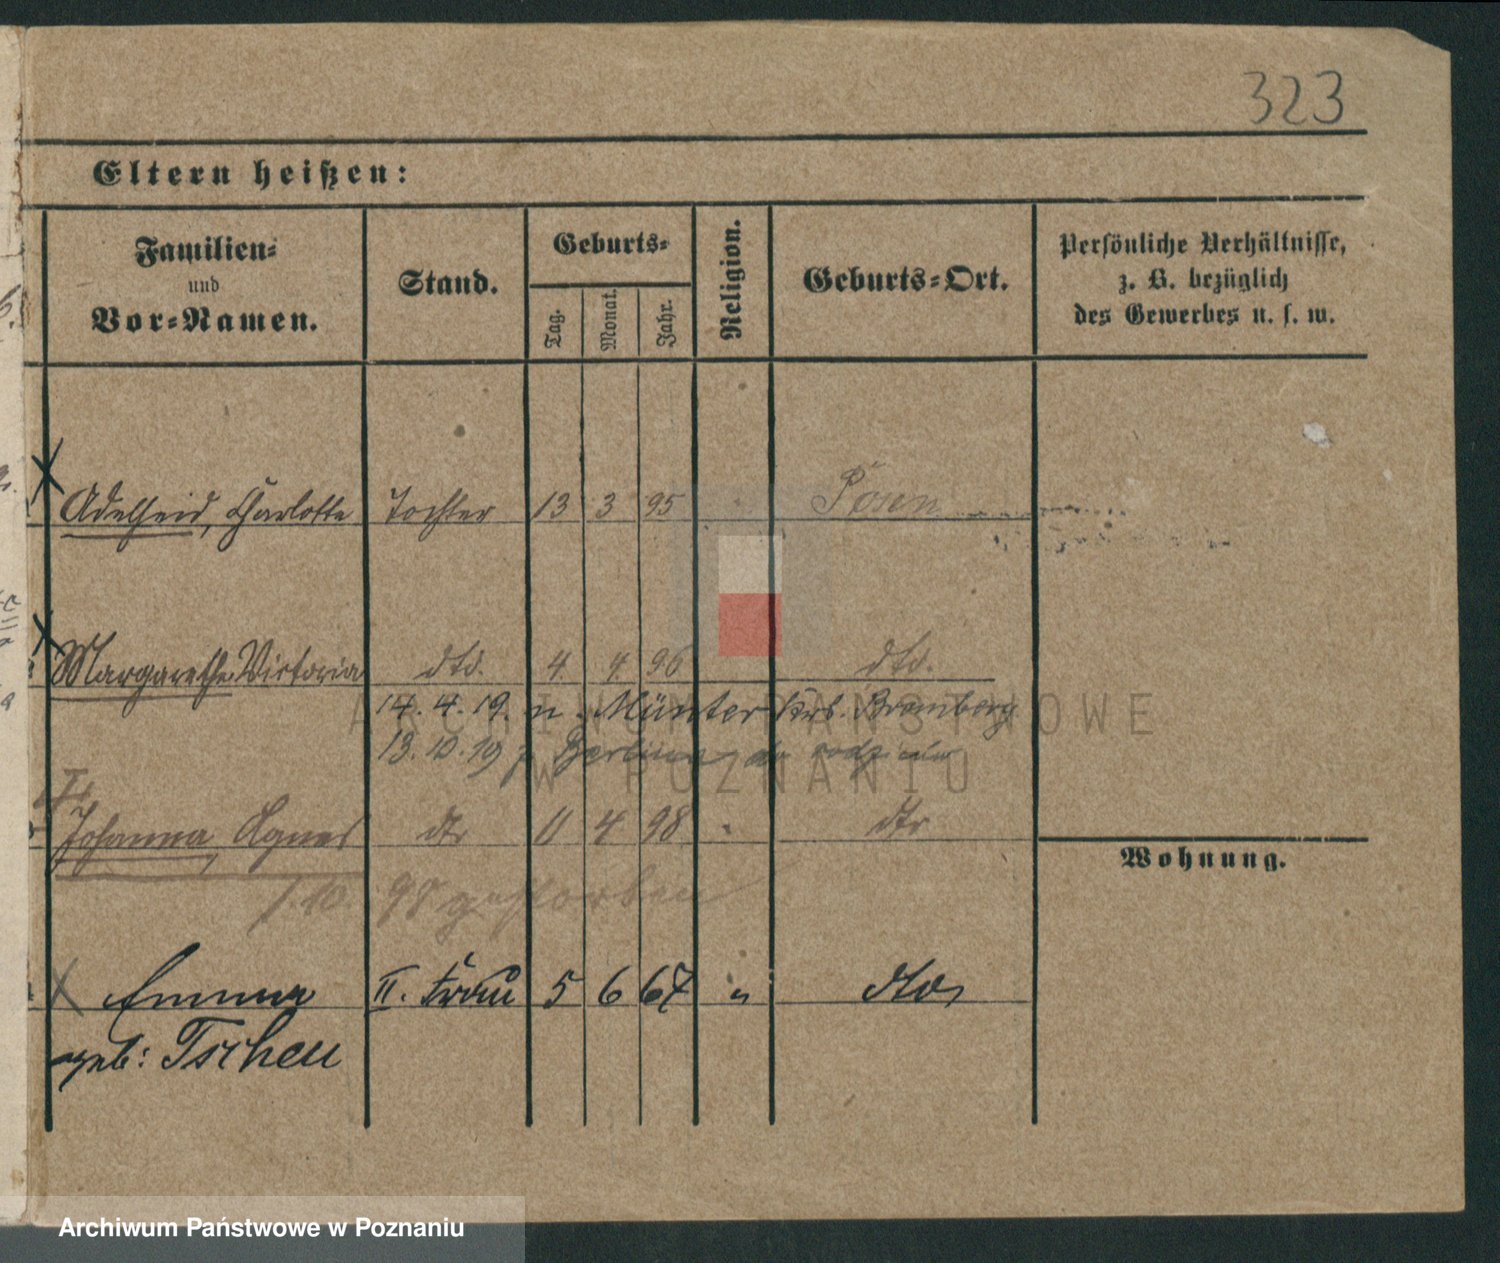 323
Eltern heißen:
Familien-
und
Vor-Namen.
Stand.
Geburts-
Tag.
Monat.
Jahr.
Religion.
Geburts-Ort.
Persönliche Verhältnisse,
z. B. bezüglich
des Gewerbes u. s. w.
Adelheid, Charlotte Tochter 13 3 95 Posen
Margarethe Victoria dto. 4. 4. 96 dto.
14. 4. 19. n. Münter Krs. Bromberg
13. 10. 19
Johanna, Agnes dto 11 4 98 " dto
1. 10. 98 gestorben
Wohnung.
Emma II. Frau 5 6 67 " dto
geb: Tscheu
ARCHIWUM PAŃSTWOWE
W POZNANIU
Archiwum Państwowe w Poznaniu